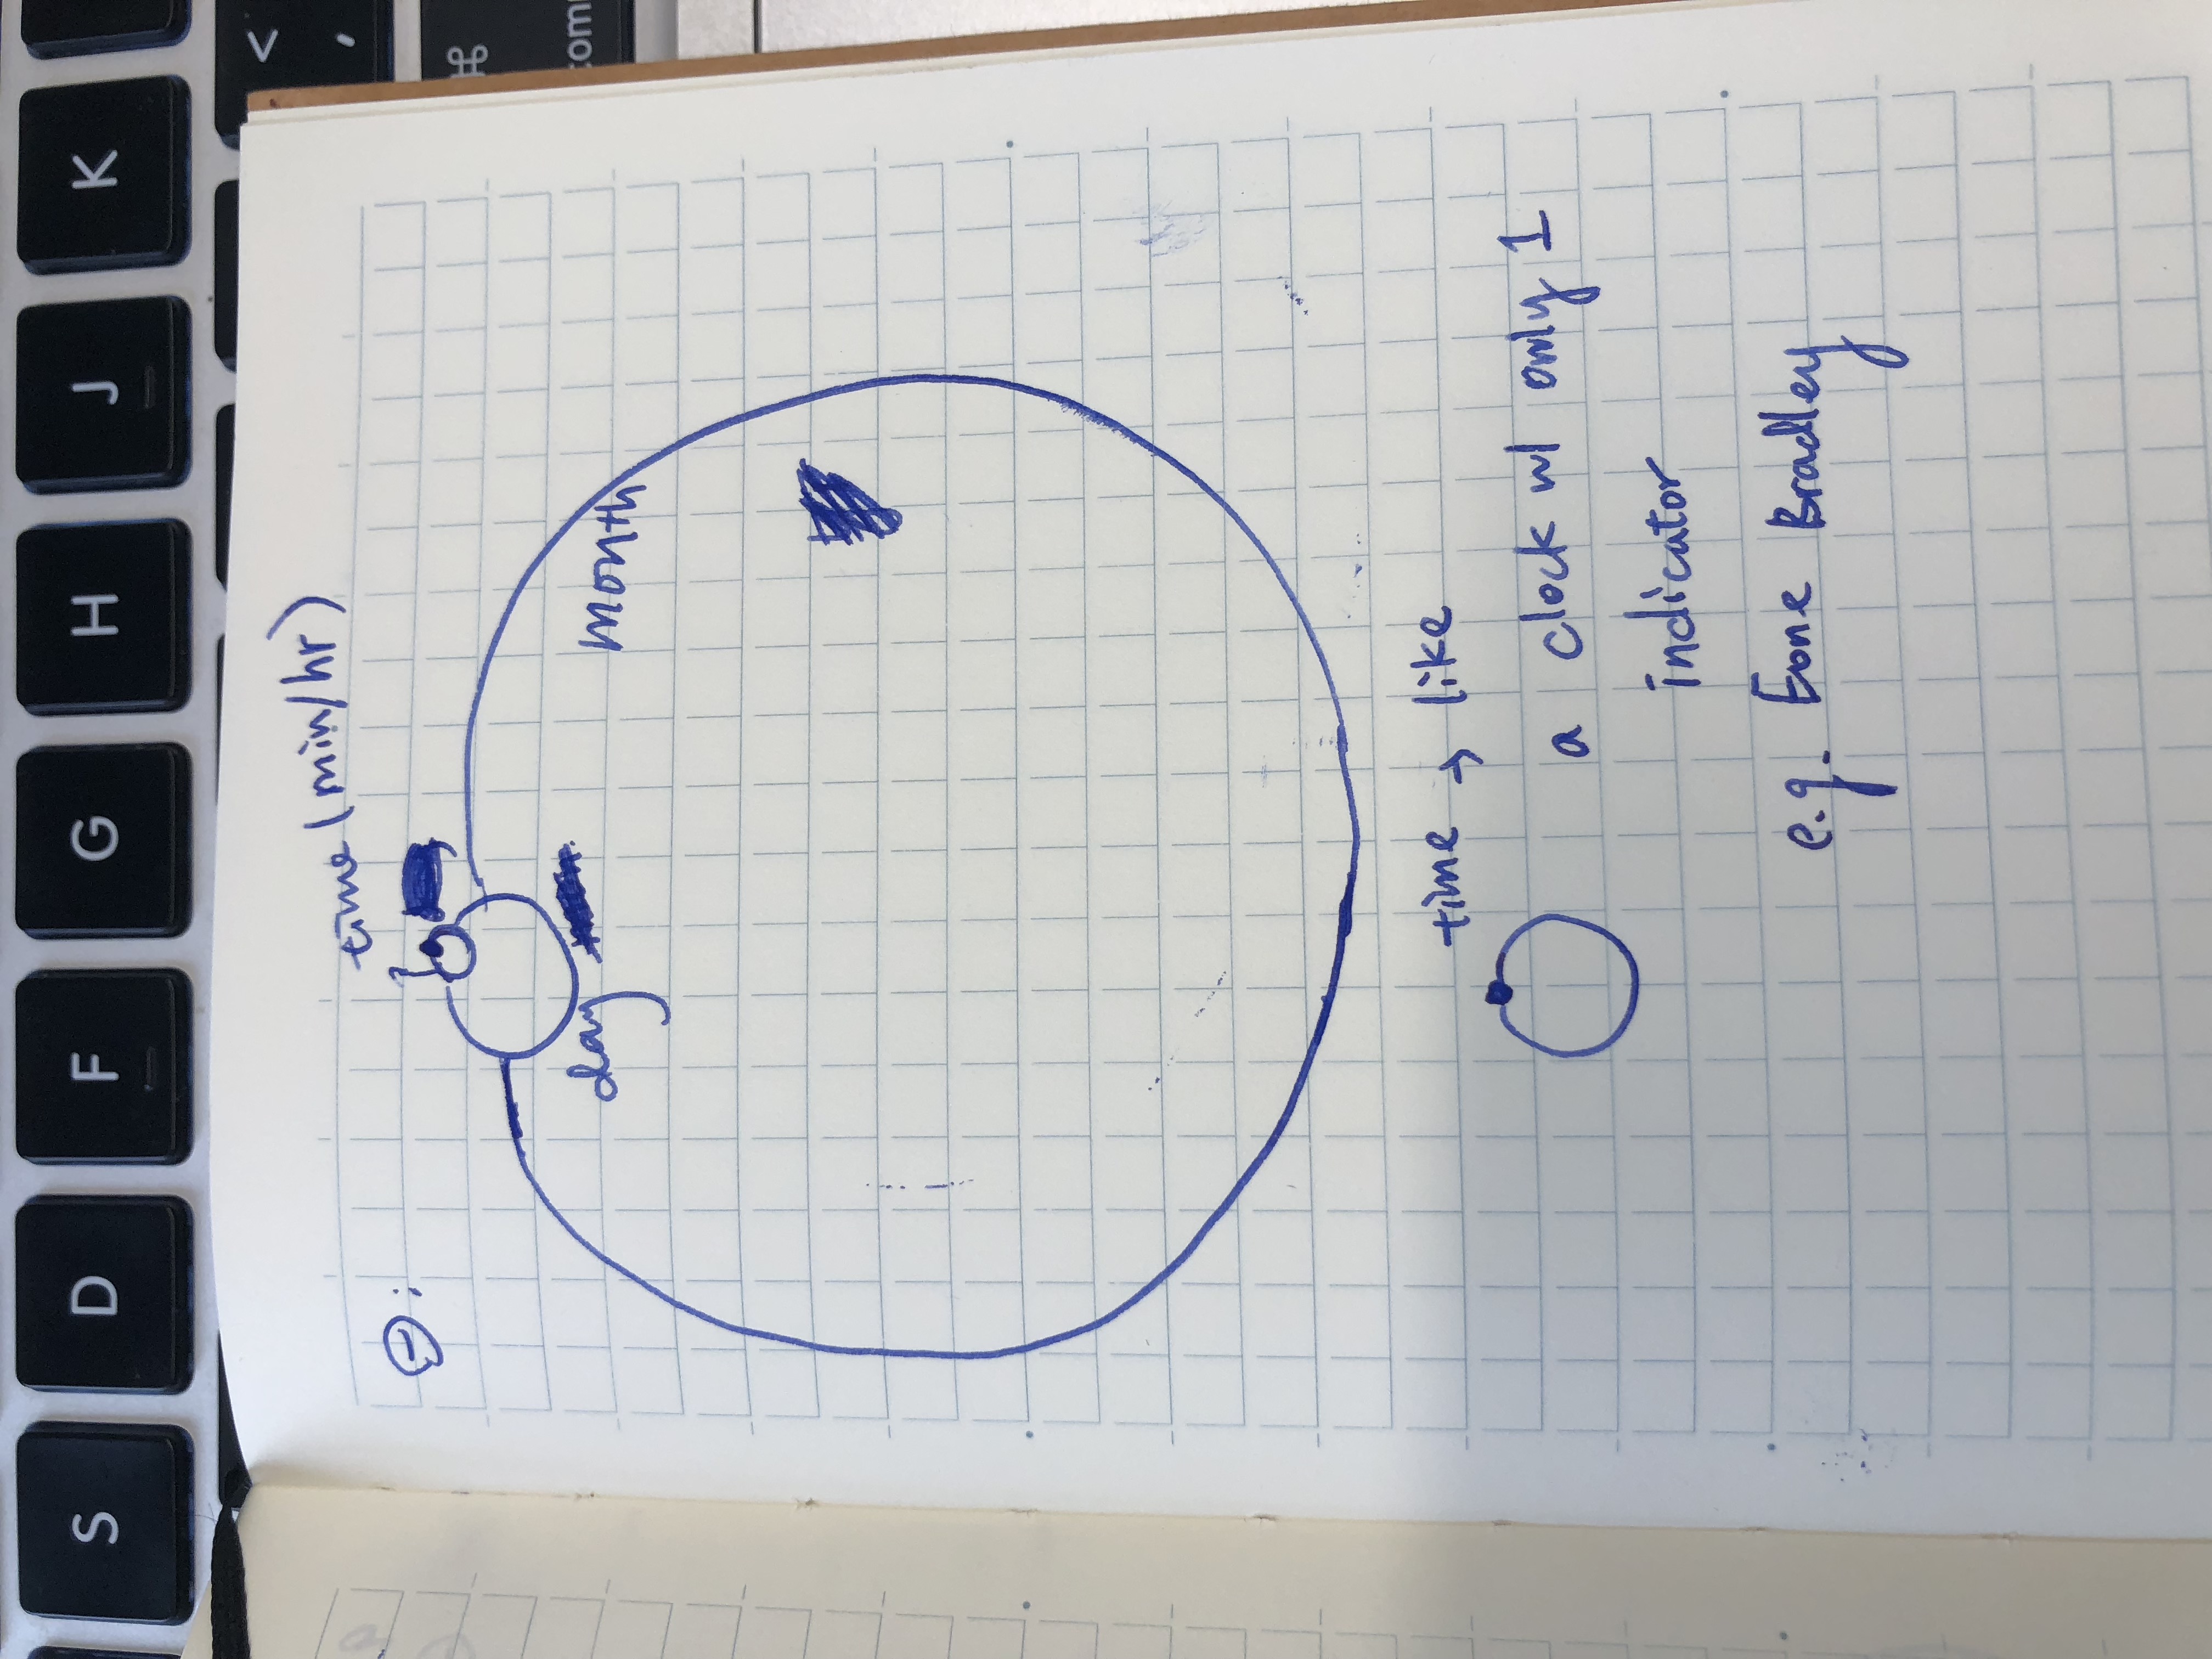 S D F G H J K
<
,
⌘
com
time (min/hr)
㊀:
day
month
time → like
a clock w/ only 1
indicator
e.g. Eone Bradley